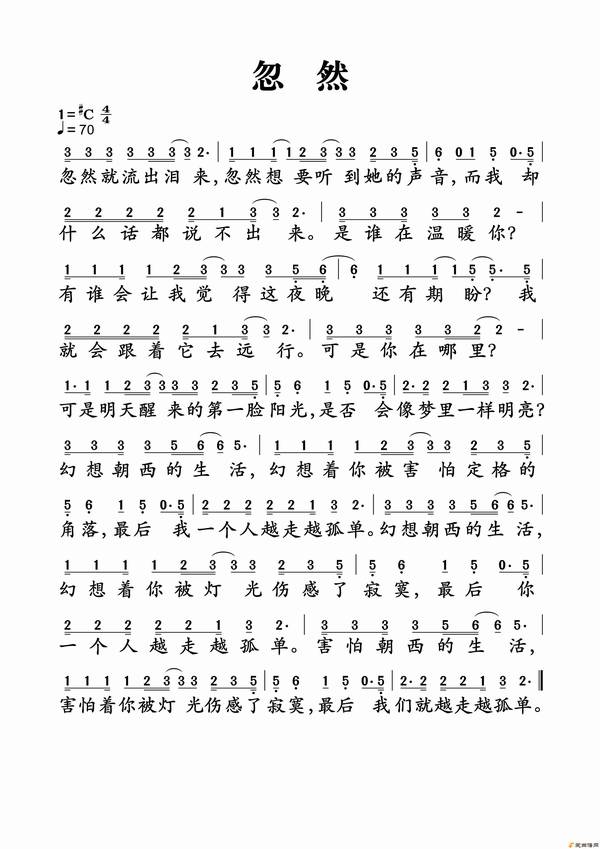 忽 然
1=#C 4/4
♩=70
3 3 3 3 3 3 3 2· | 1 1 1 1 2 3 3 2 3 5 | 6 0 1 5 0·5 |
忽然就流出泪 来,忽然想 要听 到她的声音,而我 却
2 2 2 2 2 1 3 3 2· | 3 3 3 3 3 2 - |
什么话都说不出 来。是谁在温暖你?
1 1 1 1 2 3 3 3 5 6 | 6 1 1 1 5 5· 5 |
有谁会让我觉 得这夜晚 还有期 盼? 我
2 2 2 2 2 1 3 3 2· | 3 3 3 3 3 2 2 - |
就会跟着它去远 行。可是你在哪里?
1·1 1 1 2 3 3 3 2 3 5 | 5 6 1 5 0·5 | 2·2 2 2 1 3 2· |
可是明天醒 来的第一脸阳光,是否 会像梦里一样明亮?
3 3 3 3 5 6 6 5· | 1 1 1 1 2 3 3 2 3 5 |
幻想朝西的生 活,幻想着你被害 怕定格的
5 6 1 5 0·5 | 2 2 2 2 2 1 3 2· | 3 3 3 3 5 6 6 5· |
角落,最后 我一个人越走越孤单。幻想朝西的生活,
1 1 1 1 2 3 3 2 3 5 | 5 6 1 5 0·5 |
幻想着你被灯 光伤感了 寂寞,最后 你
2 2 2 2 2 1 3 2· | 3 3 3 3 5 6 6 5· |
一个人越走越孤单。害怕朝西的生 活,
1 1 1 1 2 3 3 2 3 5 | 5 6 1 5 0·5 | 2 2 2 2 2 1 3 2· ‖
害怕着你被灯 光伤感了寂寞,最后 我们就越走越孤单。